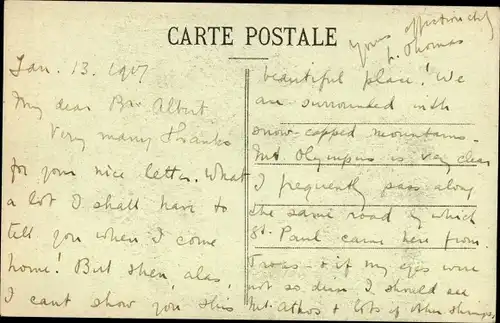 CARTE POSTALE
Jan. 13. 1917
My dear Bro Albert
Very many thanks
for your nice letter. What
a lot I shall have to
tell you when I come
home! But then, alas,
I can't show you this
beautiful place! We
are surrounded with
snow-capped mountains.
Mt. Olympus is very clear
I frequently pass along
the same road by which
St. Paul came here from
Troas & if my eyes were
not so dim I should see
Mt. Athos & lots of other things.
Yours affectionately
L. Thomas